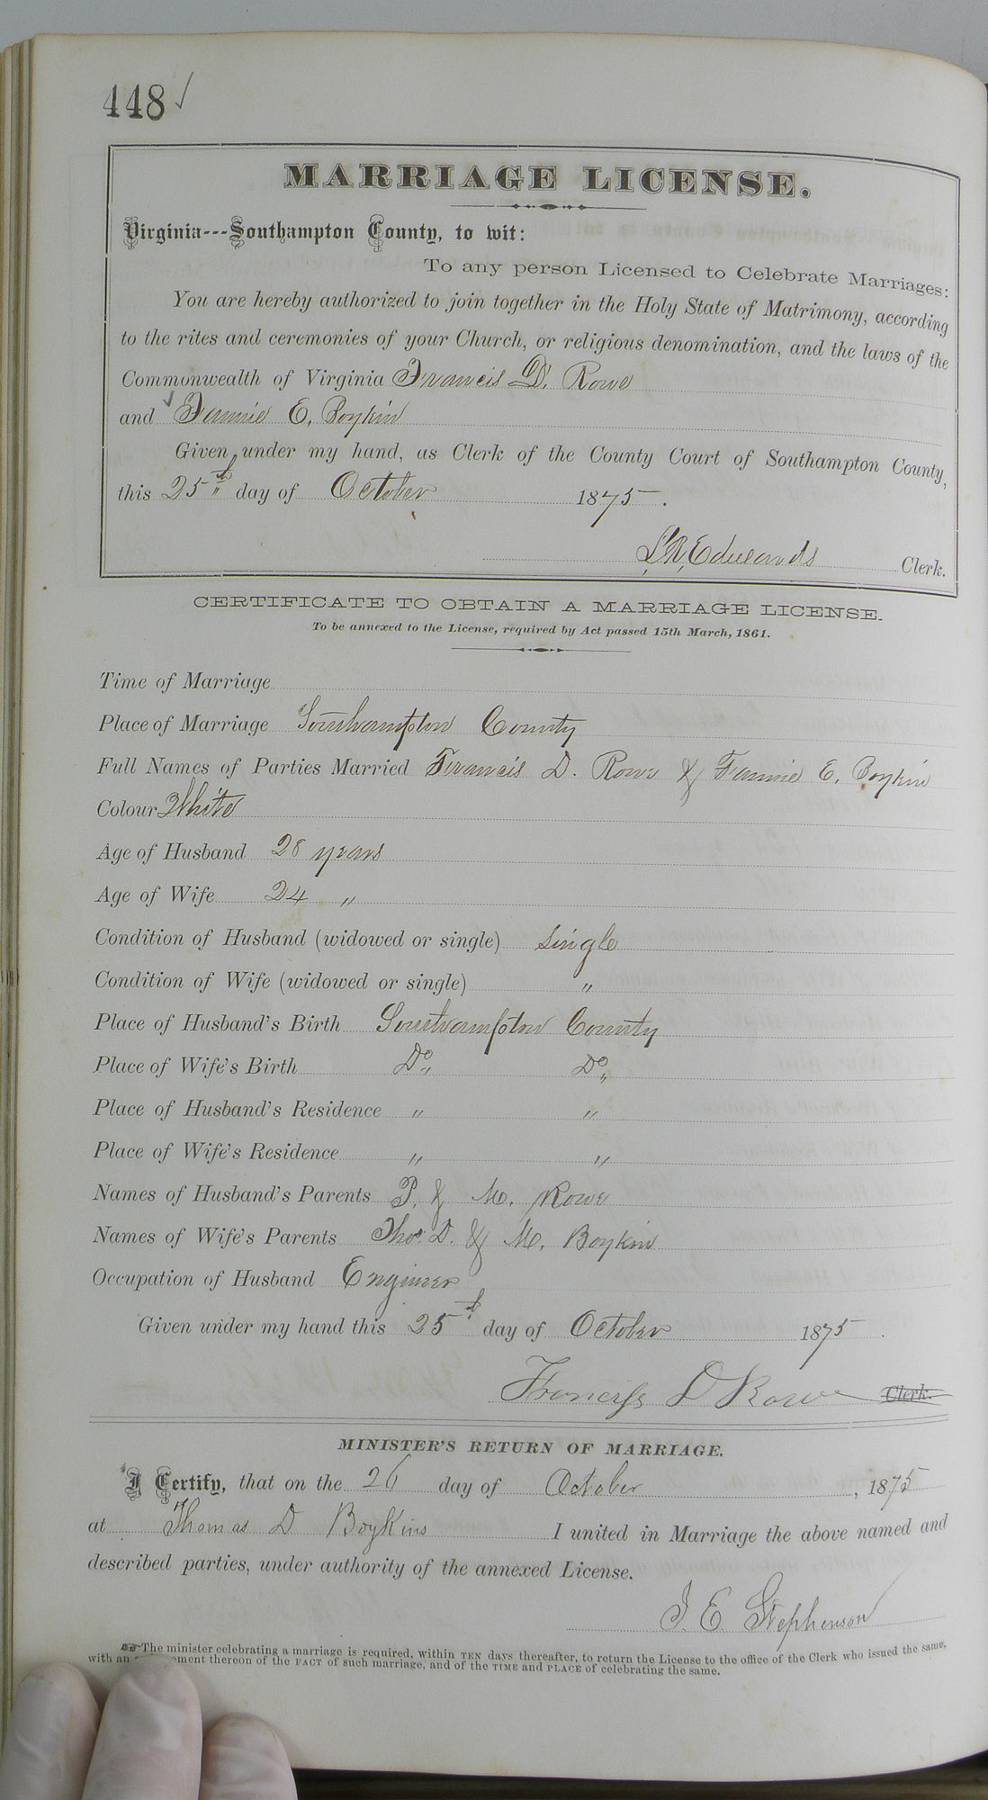 448 ✓
MARRIAGE LICENSE.
Virginia---Southampton County, to wit:
To any person Licensed to Celebrate Marriages:
You are hereby authorized to join together in the Holy State of Matrimony, according
to the rites and ceremonies of your Church, or religious denomination, and the laws of the
Commonwealth of Virginia Francis D. Rowe
and Fannie E. Boykin
Given under my hand, as Clerk of the County Court of Southampton County,
this 25th day of October 1875.
L. R. Edwards Clerk.
CERTIFICATE TO OBTAIN A MARRIAGE LICENSE.
To be annexed to the License, required by Act passed 15th March, 1861.
Time of Marriage
Place of Marriage Southampton County
Full Names of Parties Married Francis D. Rowe & Fannie E. Boykin
Colour White
Age of Husband 28 years
Age of Wife 24 "
Condition of Husband (widowed or single) Single
Condition of Wife (widowed or single) "
Place of Husband's Birth Southampton County
Place of Wife's Birth Do Do
Place of Husband's Residence " "
Place of Wife's Residence " "
Names of Husband's Parents P. & M. Rowe
Names of Wife's Parents Thos. D. & M. Boykin
Occupation of Husband Engineer
Given under my hand this 25th day of October 1875
Franciss D Rowe Clerk.
MINISTER'S RETURN OF MARRIAGE.
I Certify, that on the 26 day of October, 1875
at Thomas D Boykins I united in Marriage the above named and
described parties, under authority of the annexed License.
J. E. Stephenson
The minister celebrating a marriage is required, within TEN days thereafter, to return the License to the office of the Clerk who issued the same,
with an thereon of the FACT of such marriage, and of the TIME and PLACE of celebrating the same.